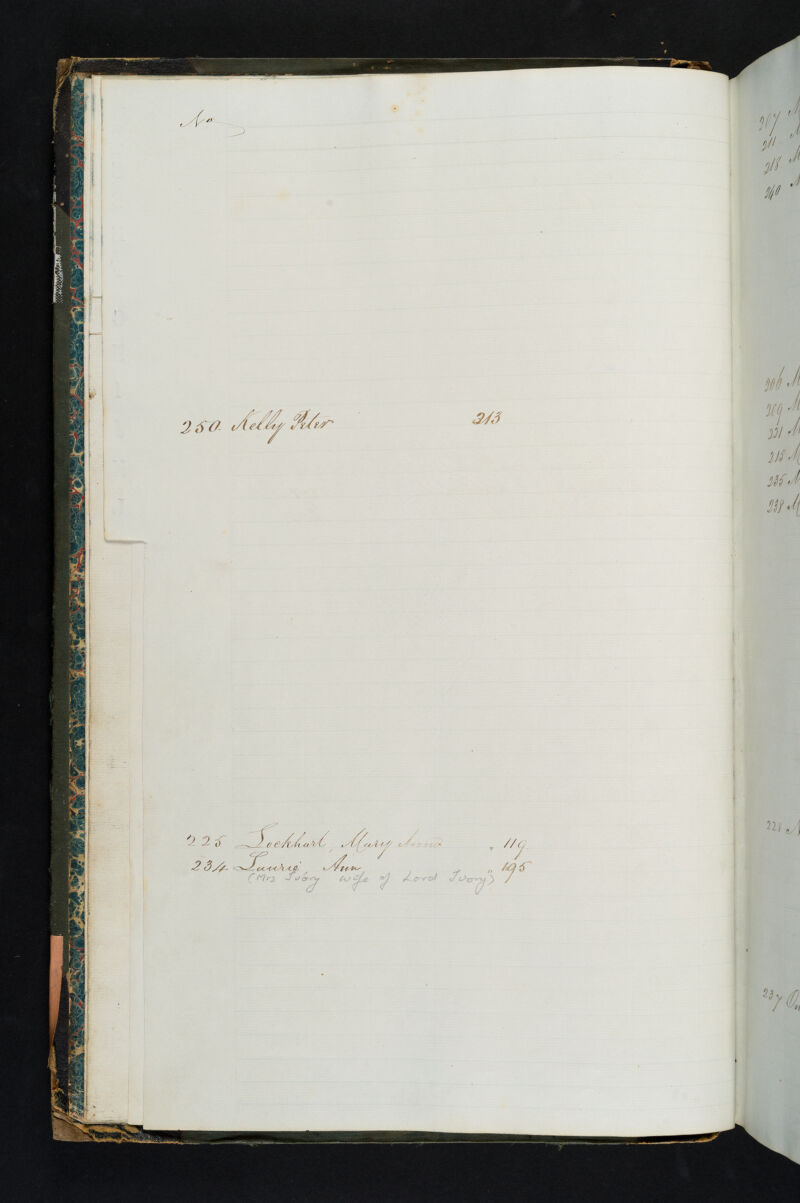 No
250. Kelly Peter 213
225 Lockhart, Mary Anna " 119.
234 Laurie Ann " 195
(Mrs Ivory wife of Lord Ivory)
217
211
218
240
206 M
209 M
231 M
215 M
235 M
238 M
221
237